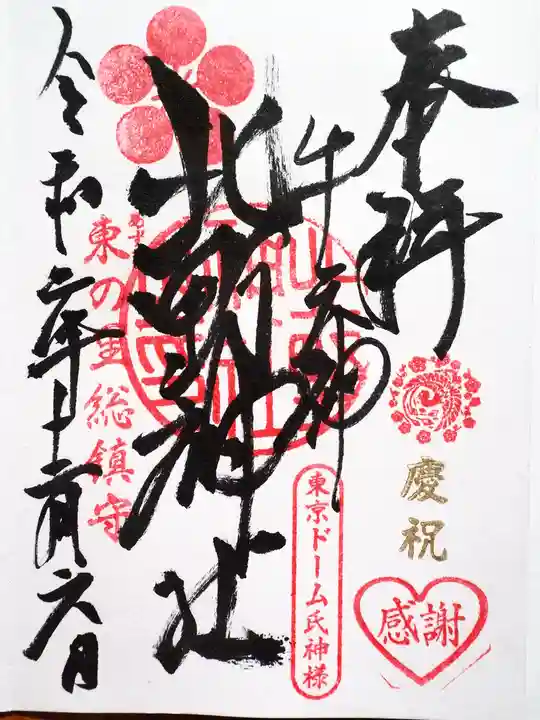 奉拝
牛天神
北野神社
令和二年十二月六日
総鎮守
東京ドーム氏神様
慶祝
感謝